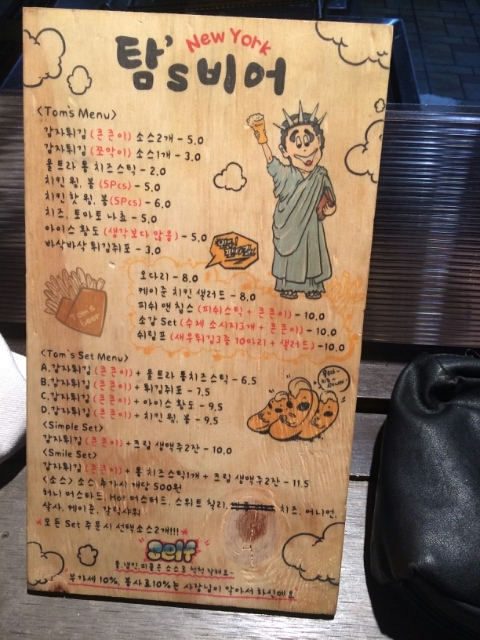 New York
탐's비어
<Tom's Menu>
감자튀김 (큰큰이) 소스2개 - 5.0
감자튀김 (쪼만이) 소스1개 - 3.0
울트라 롱 치즈스틱 - 2.0
치킨 윙, 봉 (5Pcs) - 5.0
치킨 핫 윙, 봉 (5Pcs) - 6.0
치즈, 토마토 나쵸 - 5.0
아이스 황도 (생각보다 많음) - 5.0
바삭바삭 튀김쥐포 - 3.0
오다리 - 8.0
케이준 치킨 샐러드 - 8.0
피쉬 앤 칩스 (피쉬스틱 + 큰큰이) - 10.0
소감 Set (수제 소시지3개 + 큰큰이) - 10.0
쉬림프 (새우튀김3종 10마리 + 샐러드) -10.0
Tom's Beer
<Tom's Set Menu>
A.감자튀김 (큰큰이) + 울트라 롱치즈스틱 - 6.5
B.감자튀김 (큰큰이) + 튀김쥐포 - 7.5
C.감자튀김 (큰큰이) + 아이스 황도 - 9.5
D.감자튀김 (큰큰이) + 치킨 윙, 봉 - 9.5
<Simple Set>
감자튀김 (큰큰이) + 크림 생맥주2잔 - 10.0
<Smile Set>
감자튀김 (큰큰이) + 롱 치즈스틱1개 + 크림 생맥주2잔 - 11.5
<소스> 소스 추가시 개당 500원
허니 머스타드, Hot 머스터드, 스위트 칠리, 치즈, 어니언,
살사, 케이준, 갈릭사워
모든 Set 주문시 선택소스2개!!!
Self
물, 냅킨, 피클은 스스로 척척 잘해요~
부가세 10%, 봉사료10%는 사장님이 알아서 하신데요